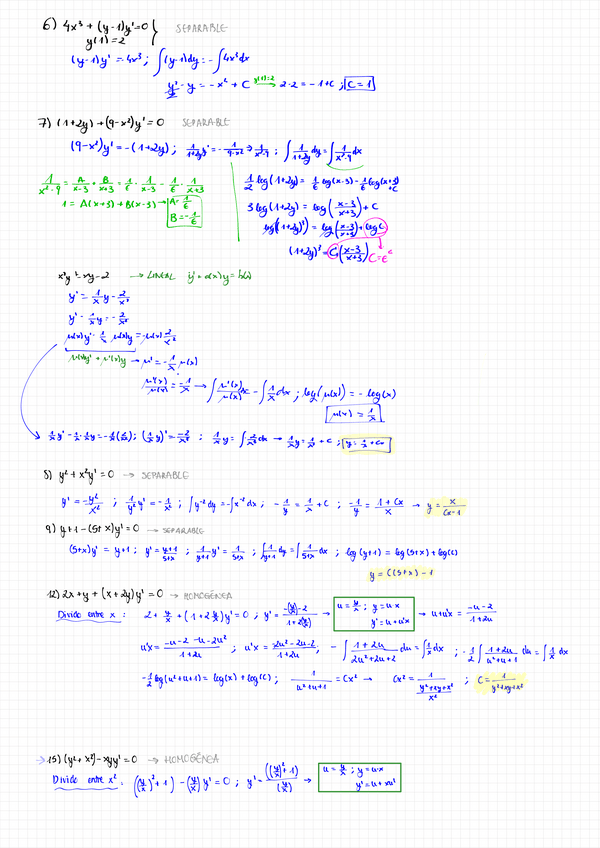 6) 4x³ + (y-1)y' = 0 } SEPARABLE
y(1) = 2
(y-1)y' = -4x³ ; ∫(y-1)dy = -∫4x³dx
y²/2 - y = -x⁴ + C →(y(1)=2) 2-2 = -1+C ; C = 1
7) (1+2y) + (9-x²)y' = 0 SEPARABLE
(9-x²)y' = -(1+2y) ; 1/(1+2y) y' = -1/(9-x²) → 1/(x²-9) ; ∫ 1/(1+2y) dy = ∫ 1/(x²-9) dx
1/(x²-9) = A/(x-3) + B/(x+3) = 1/6 · 1/(x-3) - 1/6 · 1/(x+3)
1 = A(x+3) + B(x-3) → A = 1/6
B = -1/6
1/2 log(1+2y) = 1/6 log(x-3) - 1/6 log(x+3) + C
3 log(1+2y) = log((x-3)/(x+3)) + C
log((1+2y)³) = log((x-3)/(x+3)) + log C
(1+2y)³ = C((x-3)/(x+3)) C = e^c
x²y' = xy - 2 → LINEAL y' + a(x)y = b(x)
y' = 1/x y - 2/x²
y' - 1/x y = -2/x²
μ(x)y' - 1/x μ(x)y = -μ(x) 2/x²
μ(x)y' + μ'(x)y → μ' = -1/x μ(x)
μ'(x)/μ(x) = -1/x → ∫ μ'(x)/μ(x) dx = -∫ 1/x dx ; log(μ(x)) = -log(x)
μ(x) = 1/x
1/x y' - 1/x · 1/x y = -1/x (2/x²) ; (1/x y)' = -2/x³ ; 1/x y = ∫ -2/x³ dx → 1/x y = 1/x² + C ; y = 1/x + Cx
8) y² + x²y' = 0 → SEPARABLE
y' = -y²/x² ; 1/y² y' = -1/x² ; ∫y⁻²dy = -∫x⁻²dx ; -1/y = 1/x + C ; -1/y = (1+Cx)/x → y = x/(Cx-1)
9) y+1-(5+x)y' = 0 → SEPARABLE
(5+x)y' = y+1 ; y' = (y+1)/(5+x) ; 1/(y+1) y' = 1/(5+x) ; ∫ 1/(y+1) dy = ∫ 1/(5+x) dx ; log(y+1) = log(5+x) + log(C)
y = C(5+x) - 1
12) 2x+y + (x+2y)y' = 0 → HOMOGÉNEA
Divido entre x : 2 + y/x + (1+2 y/x)y' = 0 ; y' = (-(y/x)-2)/(1+2(y/x)) → u = y/x ; y = u·x → u+u'x = (-u-2)/(1+2u)
y' = u+u'x
u'x = (-u-2-u-2u²)/(1+2u) ; u'x = (-2u²-2u-2)/(1+2u) ; -∫ (1+2u)/(2u²+2u+2) du = ∫ 1/x dx ; -1/2 ∫ (1+2u)/(u²+u+1) du = ∫ 1/x dx
-1/2 log(u²+u+1) = log(x) + log(C) ; 1/(u²+u+1) = Cx² → Cx² = 1/((y²+xy+x²)/x²) ; C = 1/(y²+xy+x²)
→ 15) (y²+x²) - xyy' = 0 → HOMOGÉNEA
Divido entre x² : ((y/x)²+1) - (y/x)y' = 0 ; y' = ((y/x)²+1)/(y/x) → u = y/x ; y = u·x
y' = u+xu'